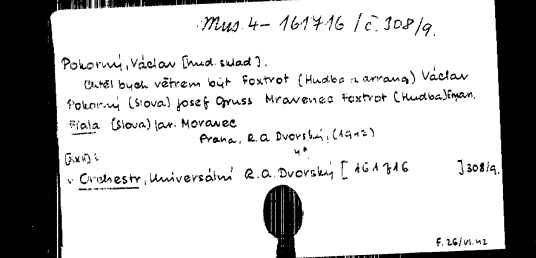 Mus. 4 - 161716 / č. 308/9.
Pokorný, Václav [hud. sklad].
Chtěl bych větrem být Foxtrot (Hudba a arrang) Václav
Pokorný (Slova) Josef Gruss Mravenec Foxtrot (Hudba) Eman.
Fiala (Slova) Jar. Moravec
Praha, R.A. Dvorský, (1942)
4°
v Orchestr, Universální R.A. Dvorský [161716 ] 308/9.
F. 26/VI. 42